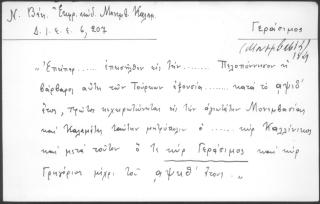 Ν. Βέη. Ἔκφρ. κώδ. Μονεμβ. Καλαμ.
Δ. Ι. Ε. Ε. 6, 207
Γεράσιμος
"Ἐπείπερ ...... ἐπεισῆλθεν εἰς τὴν ...... Πελοπόννησον ἡ
βάρβαρος αὕτη τῶν Τούρκων ἐξουσία ...... κατὰ τὸ αψιδ´
ἔτος, πρῶτος κεχειροτόνηται εἰς τὴν ἁγιωτάτην Μονεμβασίας
καὶ Καλαμάτας ταύτην μητρόπολιν ὁ ...... κὺρ Καλλίνικος
καὶ μετὰ τοῦτον ὅ τε κὺρ Γεράσιμος καὶ κὺρ
Γρηγόριος μέχρι τοῦ αψκθ´ ἔτους."